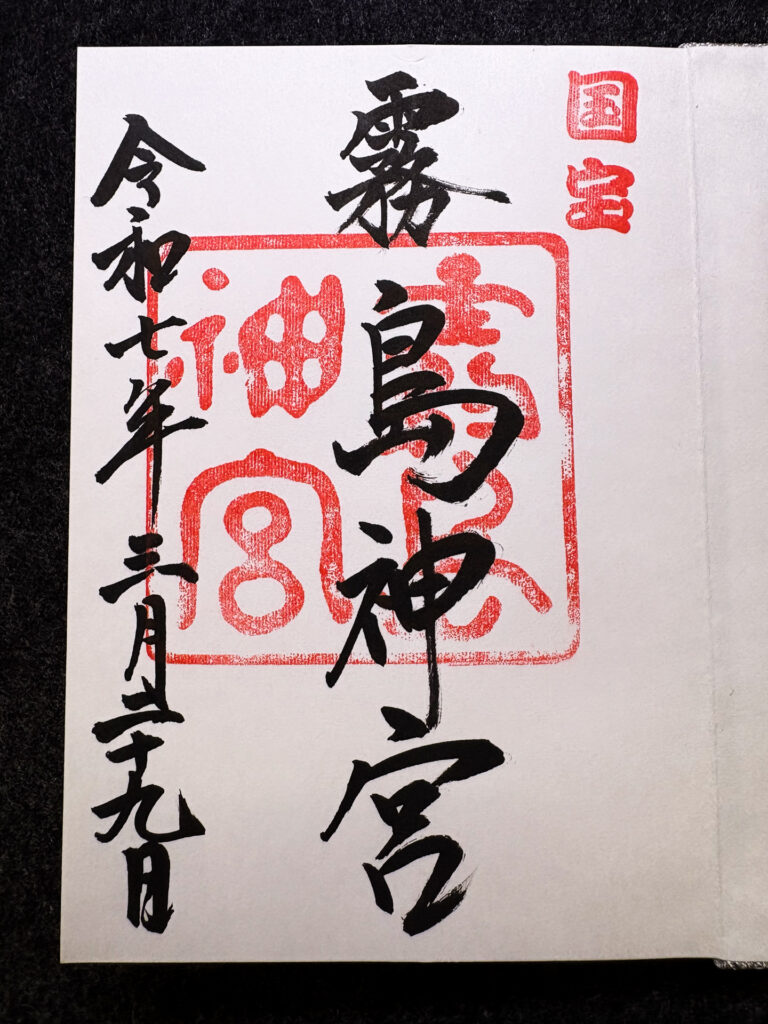 国宝
霧島神宮
霧島
神宮
令和七年三月二十九日